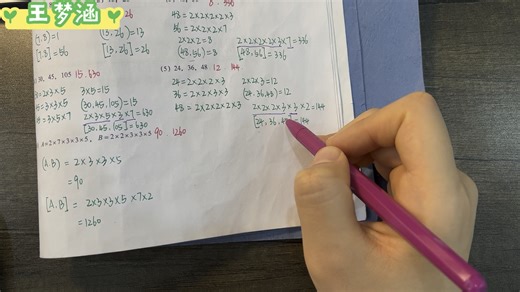 王梦涵
[7,8]=56
(13,26)=13
[13,26]=26
48=2×2×2×2×3
2×2×2=8
(48,56)=8
2×2×2×2×3×7=336
[48,56]=336
30, 45, 105 15.630
=2×3×5
=3×3×5
=3×5×7
3×5=15
(30,45,105)=15
2×3×5×3×7=630
[30,45,105]=630
(5) 24, 36, 48 12 144
24=2×2×2×3
36=2×2×3×3
48=2×2×2×2×3
2×2×3=12
(24,36,48)=12
2×2×2×3×3×2=144
=144
90 1260
(A.B) = 2×3×3×5
=90
[A.B] = 2×3×3×5×7×2
=1260